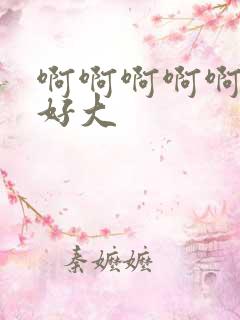 啊啊啊啊啊
好大
秦嬷嬷